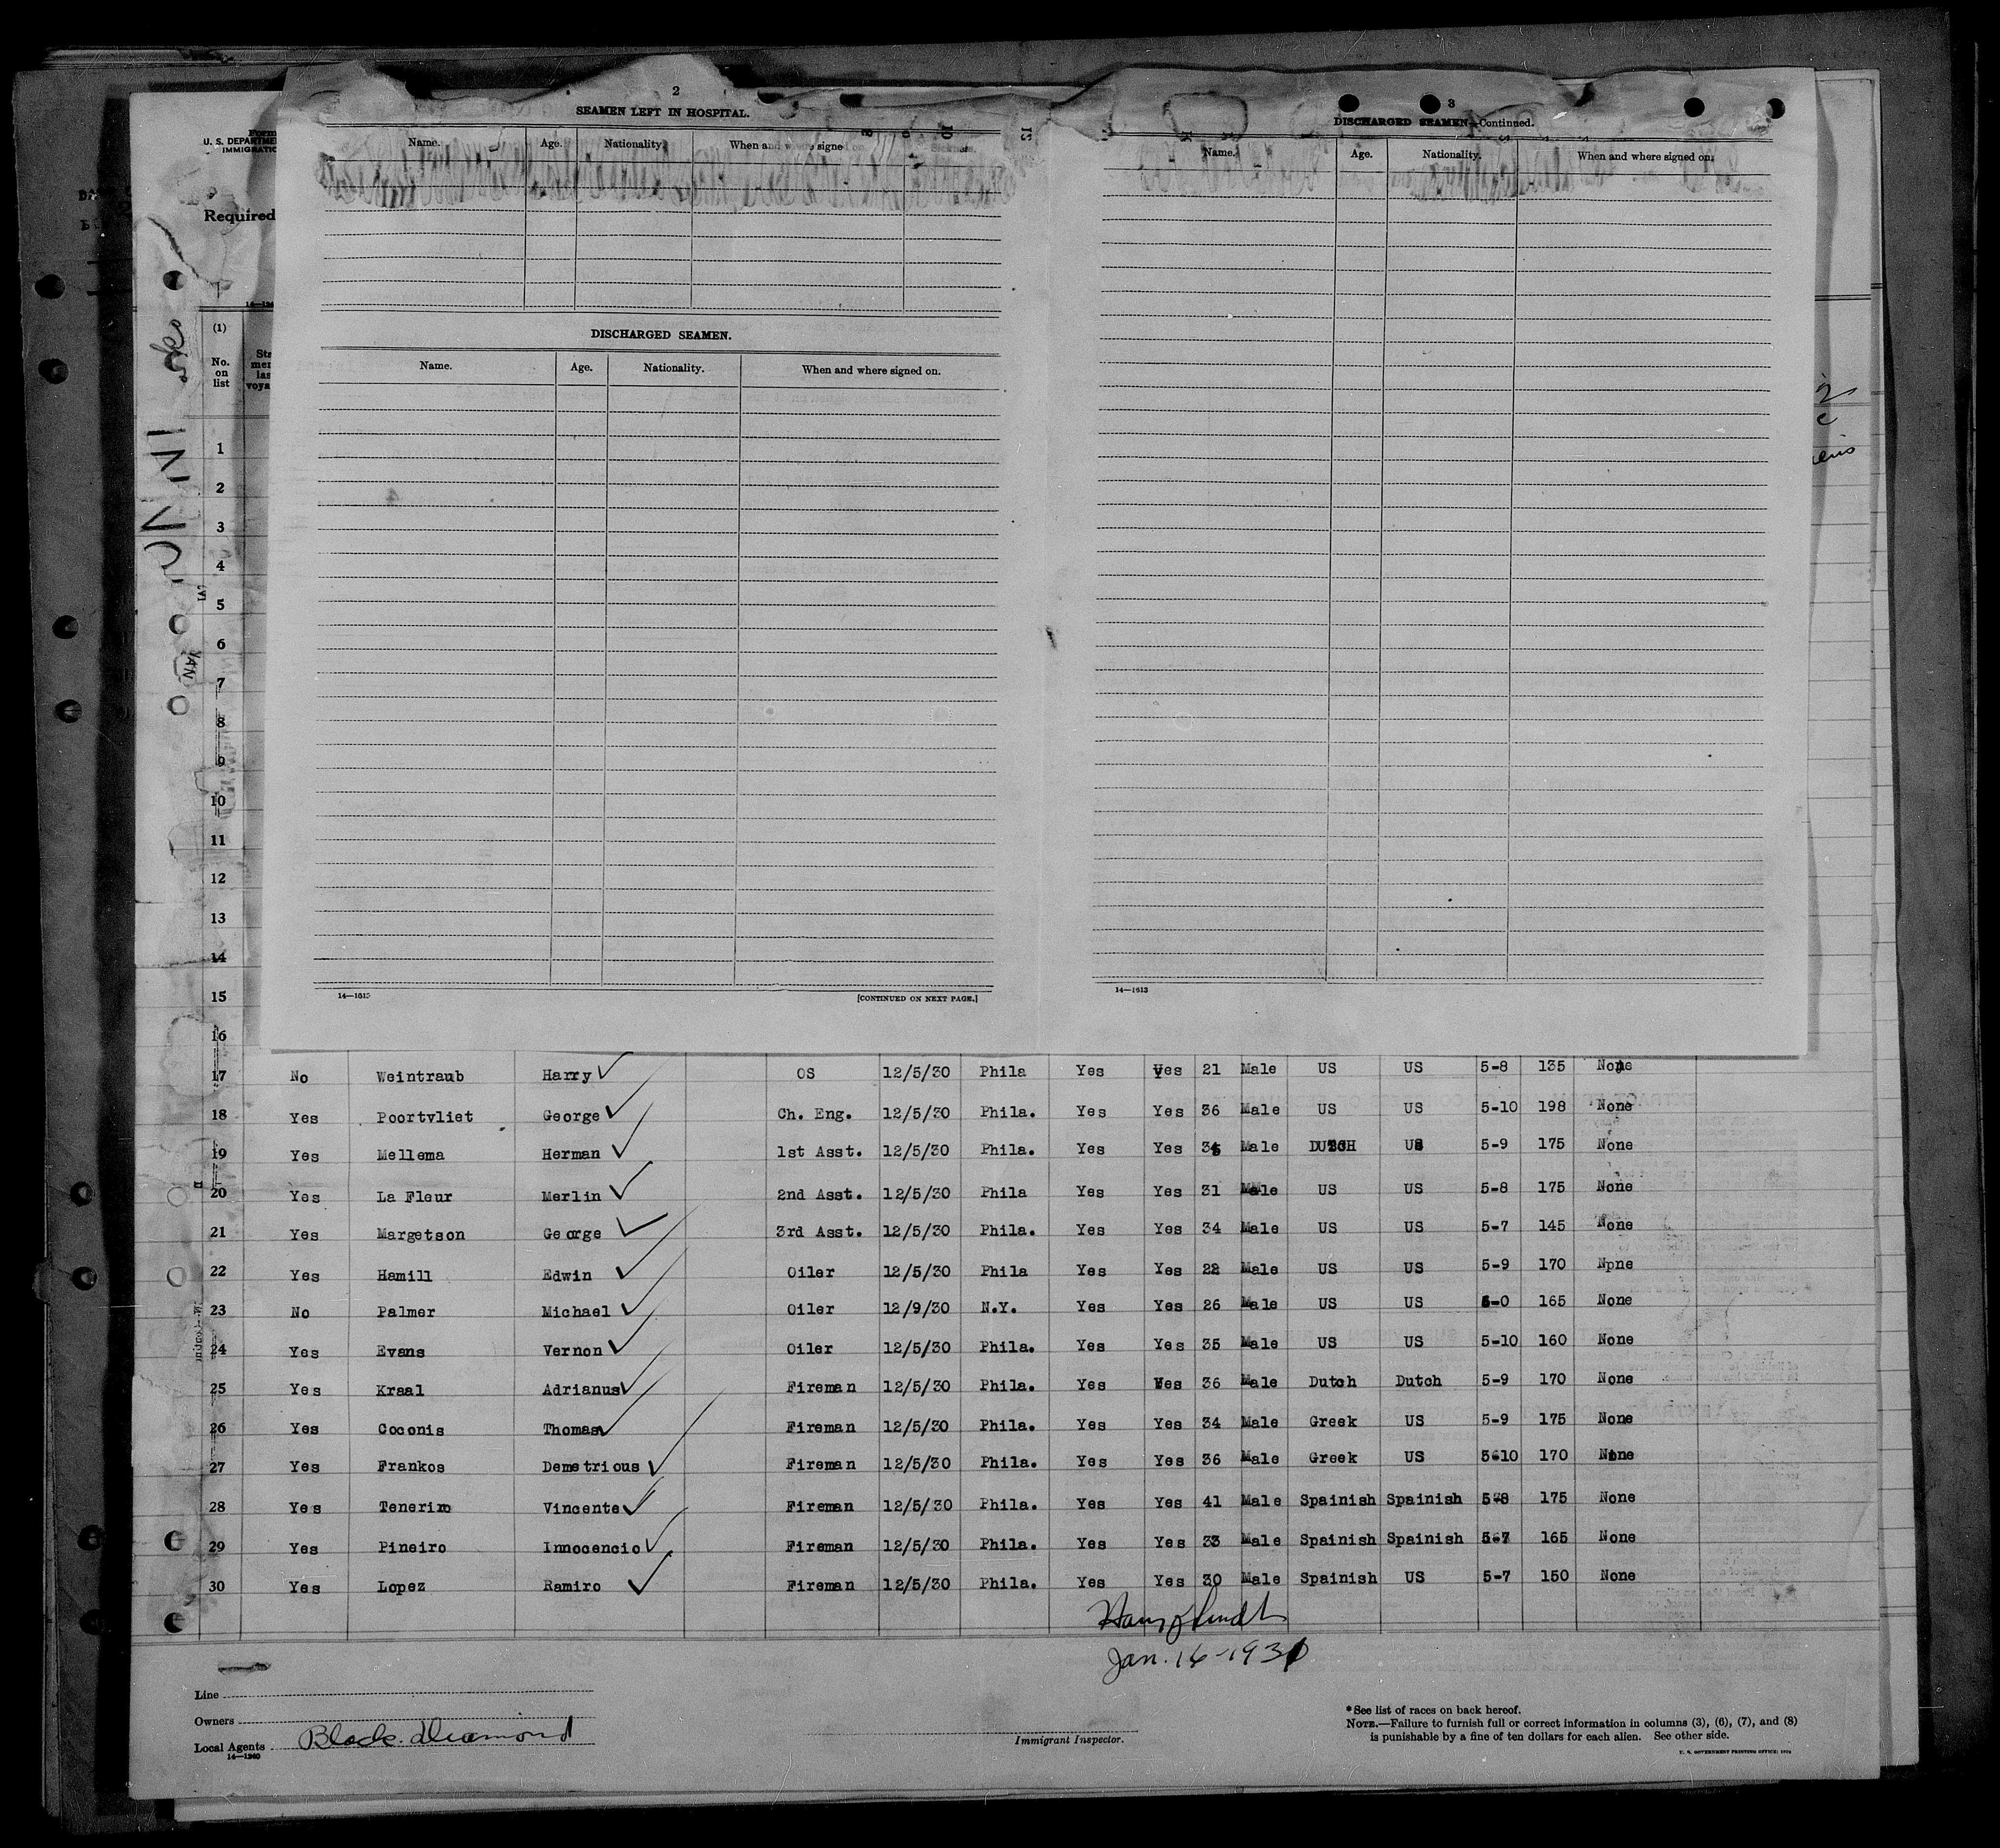 2
SEAMEN LEFT IN HOSPITAL.
Name. Age. Nationality. When and where signed on.
DISCHARGED SEAMEN.
Name. Age. Nationality. When and where signed on.
14—1613 [CONTINUED ON NEXT PAGE.]
3
DISCHARGED SEAMEN—Continued.
Name. Age. Nationality. When and where signed on.
14—1613
Form
U. S. DEPARTME
IMMIGRATIO
Required
(1)
No.
on
list
1
2
3
4
5
6
7
8
9
10
11
12
13
14
15
16
17 No Weintraub Harry OS 12/5/30 Phila Yes Yes 21 Male US US 5-8 135 None
18 Yes Poortvliet George Ch. Eng. 12/5/30 Phila. Yes Yes 36 Male US US 5-10 198 None
19 Yes Mellema Herman 1st Asst. 12/5/30 Phila. Yes Yes Male DUTCH US 5-9 175 None
20 Yes La Fleur Merlin 2nd Asst. 12/5/30 Phila Yes Yes 31 Male US US 5-8 175 None
21 Yes Margetson George 3rd Asst. 12/5/30 Phila. Yes Yes 34 Male US US 5-7 145 None
22 Yes Hamill Edwin Oiler 12/5/30 Phila Yes Yes 22 Male US US 5-9 170 Npne
23 No Palmer Michael Oiler 12/9/30 N.Y. Yes Yes 26 Male US US 165 None
24 Yes Evans Vernon Oiler 12/5/30 Phila. Yes Yes 35 Male US US 5-10 160 None
25 Yes Kraal Adrianus Fireman 12/5/30 Phila. Yes Yes 36 Male Dutch Dutch 5-9 170 None
26 Yes Coconis Thomas Fireman 12/5/30 Phila. Yes Yes 34 Male Greek US 5-9 175 None
27 Yes Frankos Demetrious Fireman 12/5/30 Phila. Yes Yes 36 Male Greek US 5-10 170 None
28 Yes Teneriro Vincente Fireman 12/5/30 Phila. Yes Yes 41 Male Spainish Spainish 5-8 175 None
29 Yes Pineiro Innocencio Fireman 12/5/30 Phila. Yes Yes 33 Male Spainish Spainish 5-7 165 None
30 Yes Lopez Ramiro Fireman 12/5/30 Phila. Yes Yes 30 Male Spainish US 5-7 150 None
Jan. 16-1931
Line
Owners
Local Agents Black Diamond
14—1240
Immigrant Inspector.
*See list of races on back hereof.
NOTE.—Failure to furnish full or correct information in columns (3), (6), (7), and (8)
is punishable by a fine of ten dollars for each alien. See other side.